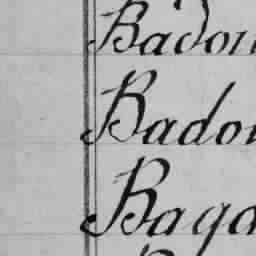 Badou
Badou
Baga